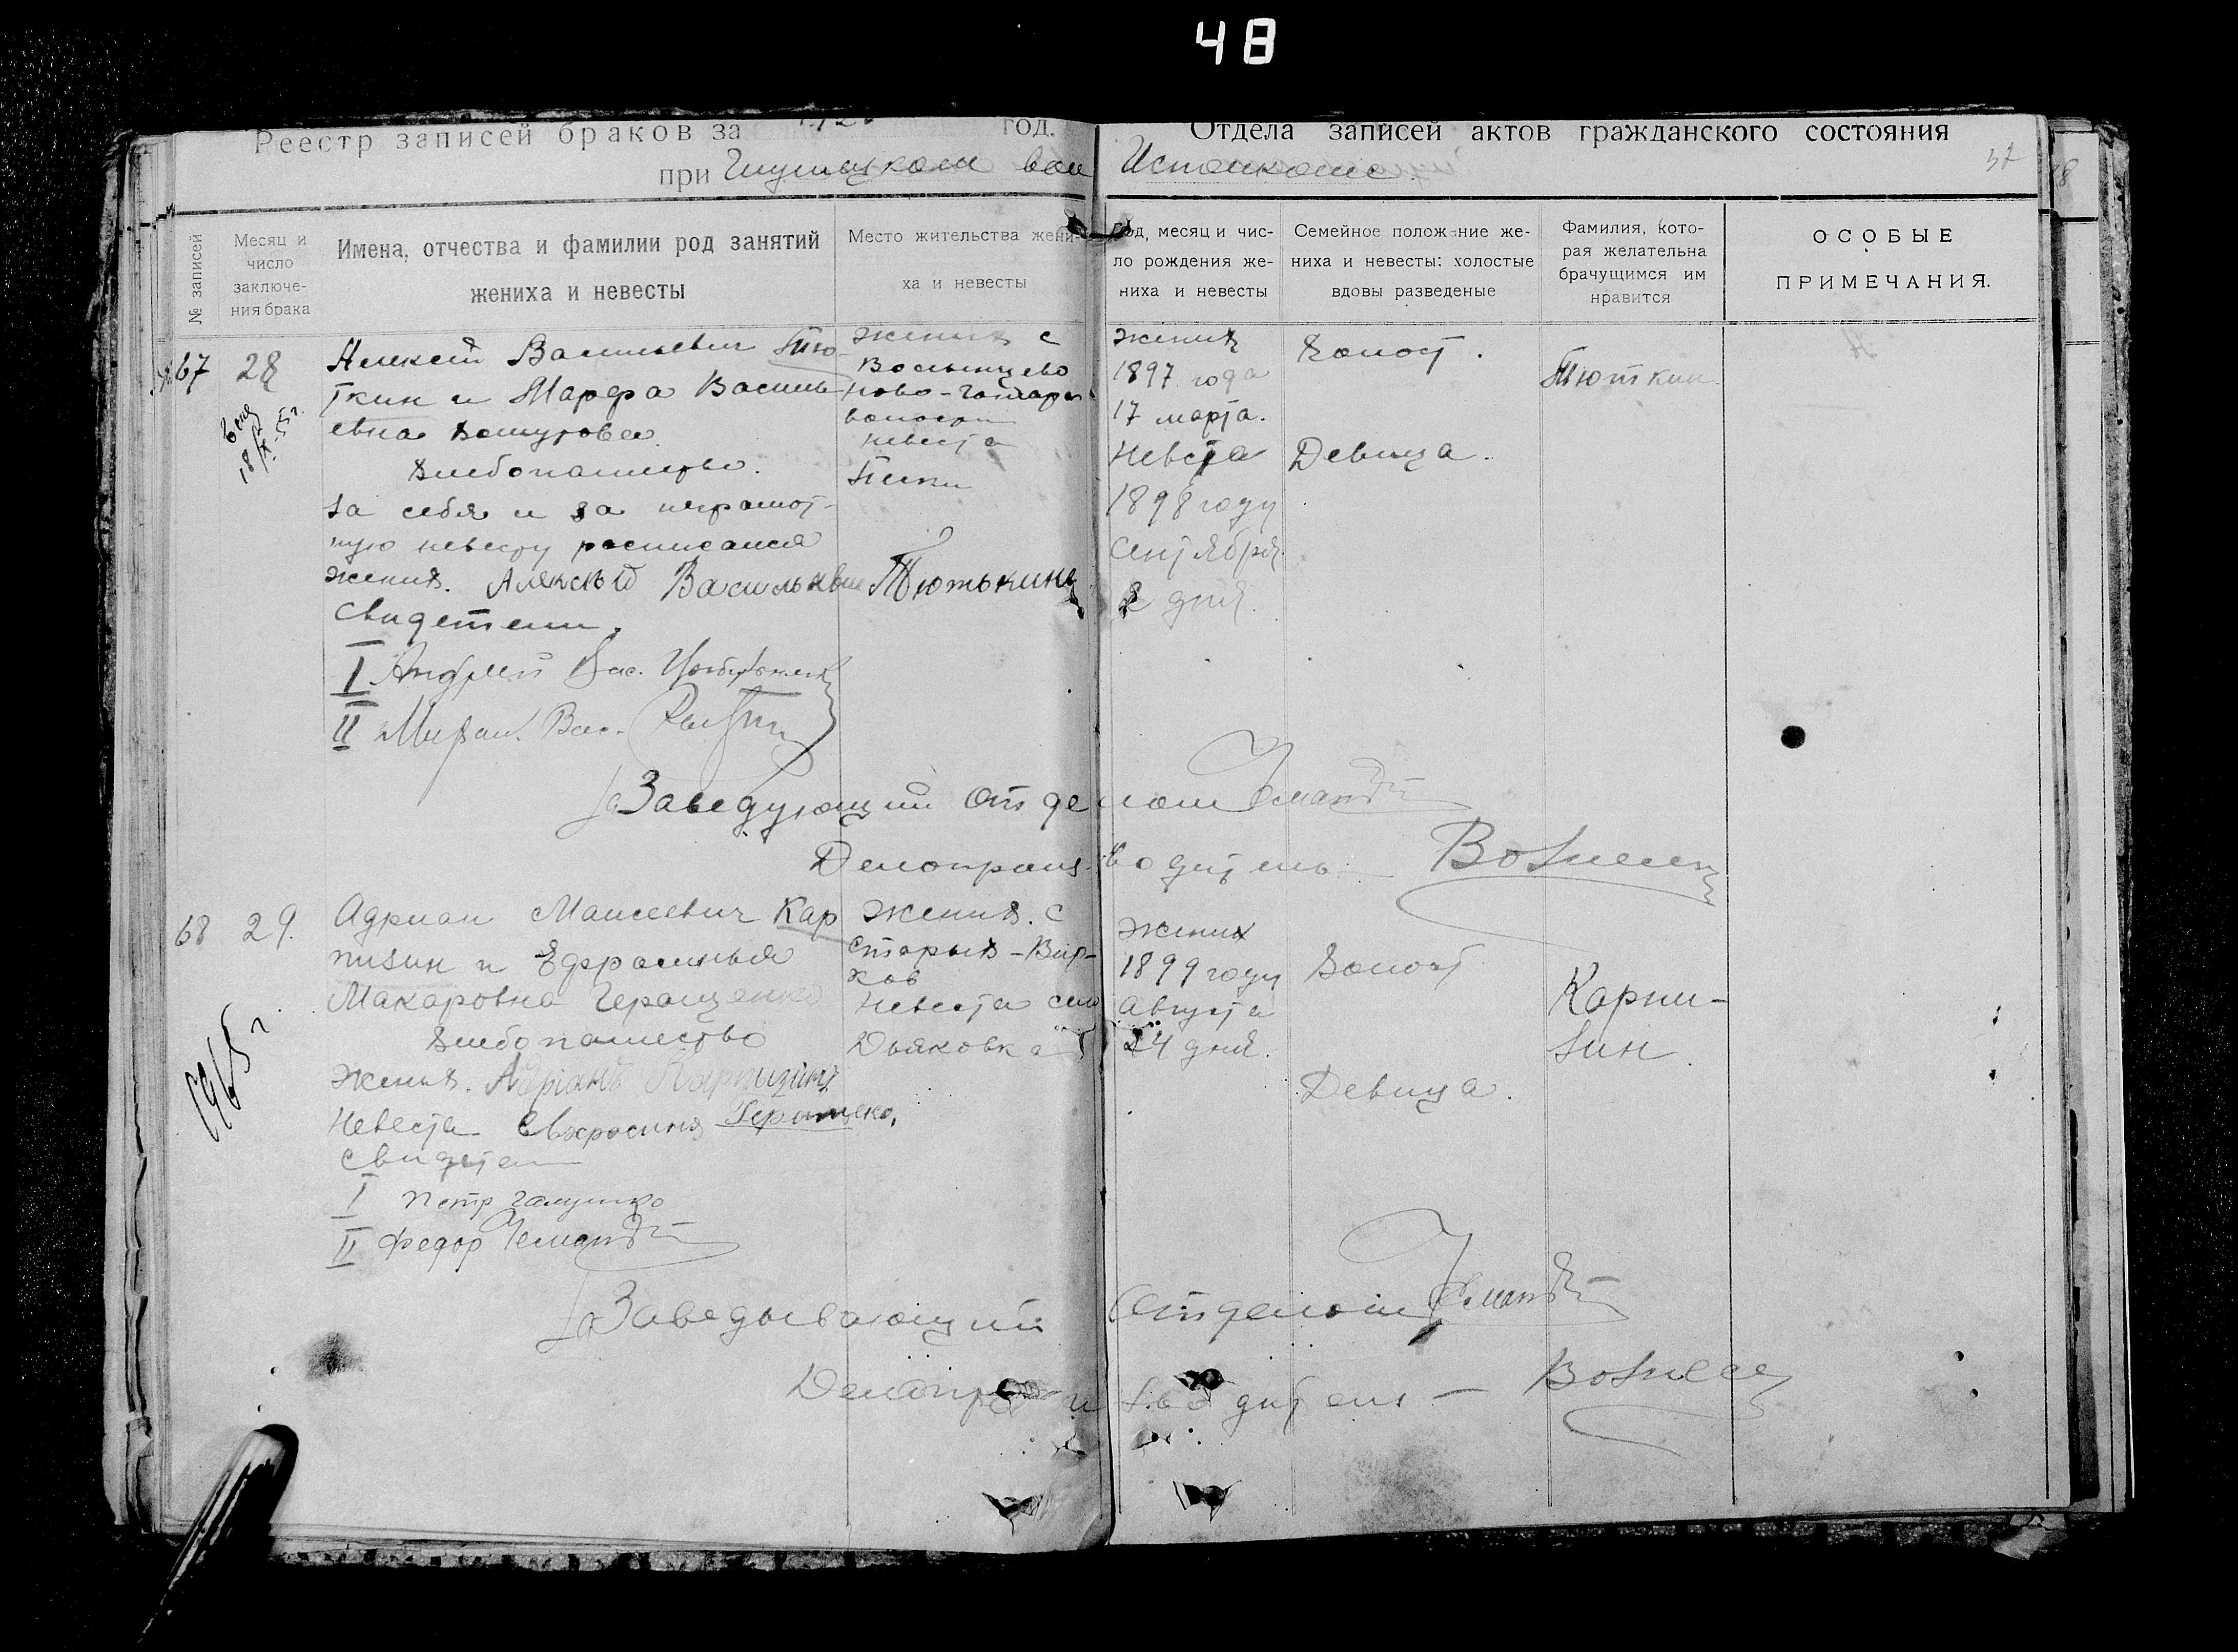 48
Реестр записей браков за год.
Отдела записей актов гражданского состояния
при вол Исполкоме.
37
№ записей
Месяц и число заключения брака
Имена, отчества и фамилии род занятий
жениха и невесты
Место жительства жениха и невесты
Год, месяц и число рождения жениха и невесты
Семейное положение жениха и невесты: холостые вдовы разведеные
Фамилия, которая желательна брачущимся им нравится
ОСОБЫЕ
ПРИМЕЧАНИЯ.
67
28
Алексей Васильевич Тю-
ткин и Марфа Василь
евна
Хлебопашество.
за себя и за неграмот-
ную невесту росписался
жених. Алексый Васильквич Тютькинъ
Свидетели.
I Андрей Вас.
II Михаил. Вас.
жених с
Волынцево
Ново-
волости
невеста
Пески
жених
1897 года
17 марта.
Невеста
1898 году
Сентября
2 дня.
Холост.
Девица.
Тюткин
за Заведующий Отделом
Делопроизводитель
68
29.
1965 г.
Адриан Маисеевич Кар
пизин и Ефросинья
Макаровна Геращенко
Хлебопашество
Жених. Адріанъ Карпизинъ
Невеста Евхросиня Геращеко,
Свидетели
I Петр Галушко
II Федор
Жених. с
Старых-Вир-
ков
Невеста село
Дьяковка
Жених
1899 году
Августа
24 дня.
Холост
Девица.
Карпи-
зин.
за Заведывающий Отделом
Делопроизводитель —